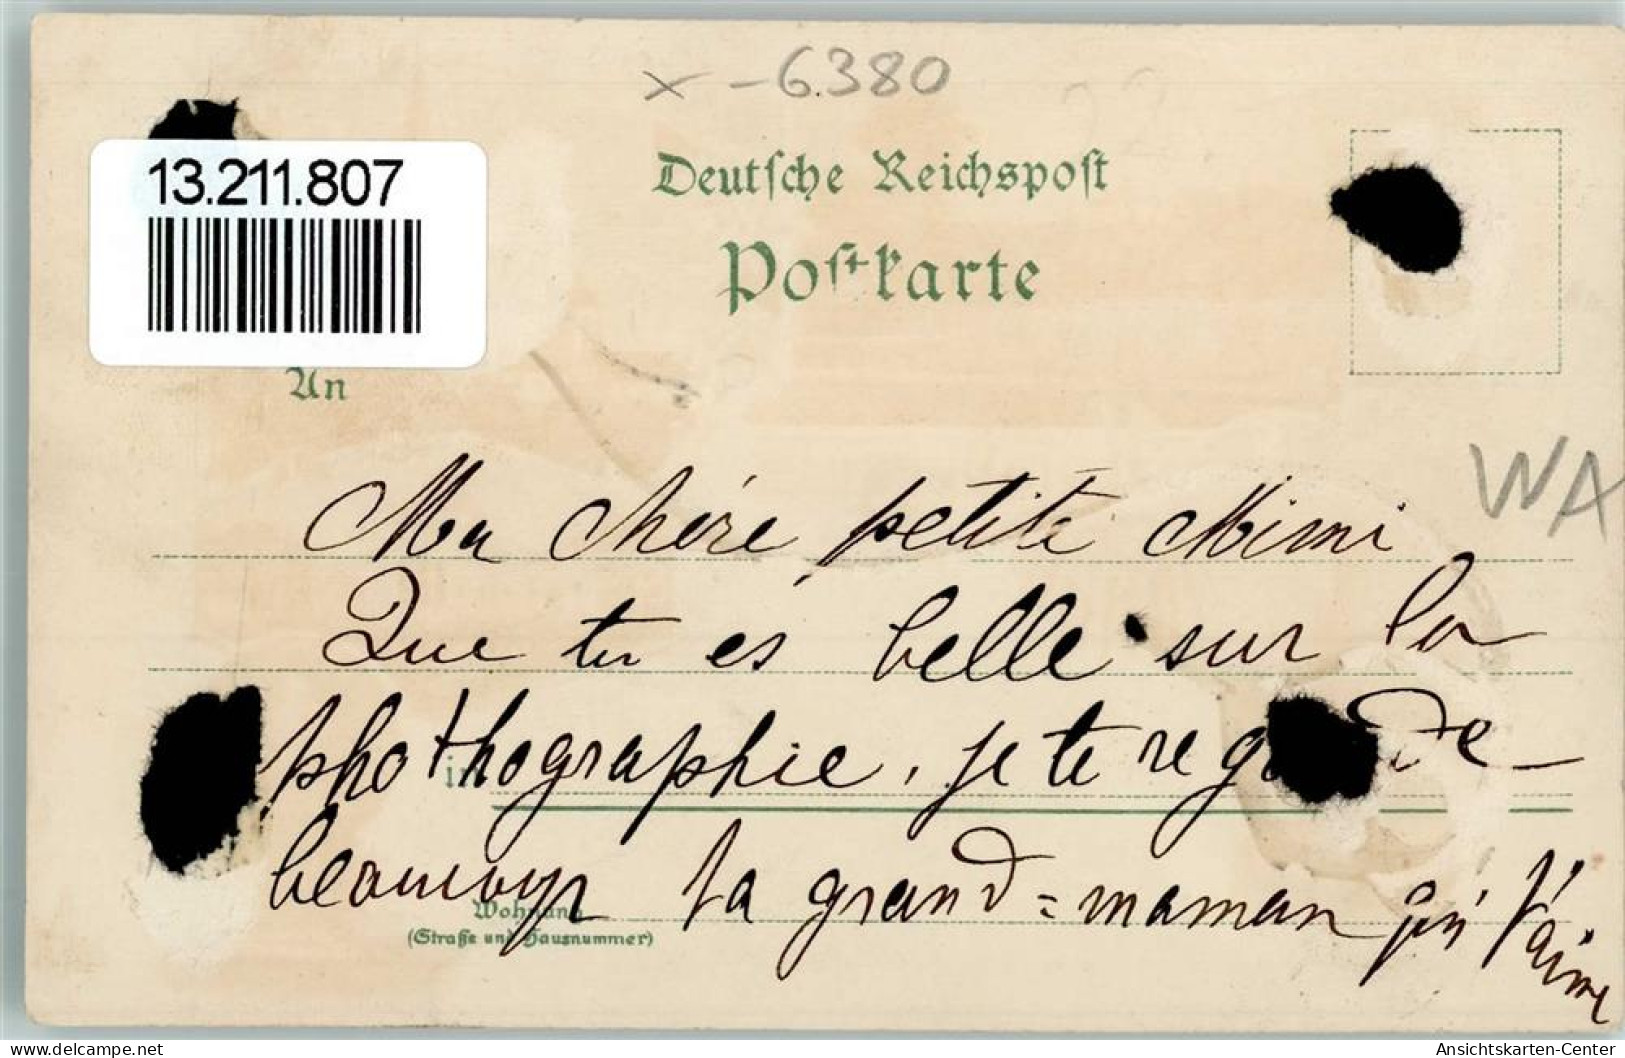 x - 6.380
13.211.807
Deutsche Reichspost
Postkarte
An
WA
Ma chère petite Mimi
Que tu es belle sur la
phothographie, je te regarde
in
beaucoup ta grand=maman qui t'aime
Wohnung
(Straße und Hausnummer)
delcampe.net
Ansichtskarten-Center